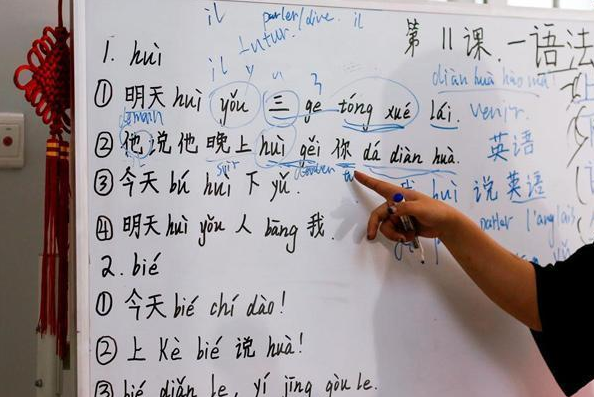 il parler/dire. il
futur.
第 11 课. 一语法
1. huì
il y
diàn huà hào mǎ
① 明天 huì yǒu 三 ge tóng xué lái. venir.
② 他说他晚上 huì gěi 你 dá diàn huà. 英语
soir
③ 今天 bú huì 下 yǔ. huì 说英语
parler l'anglais
④ 明天 huì yǒu 人 bāng 我.
2. bié
① 今天 bié chí dào!
② 上 Kè bié 说 huà!
③ bié diǎn le, yí jīng gòu le.